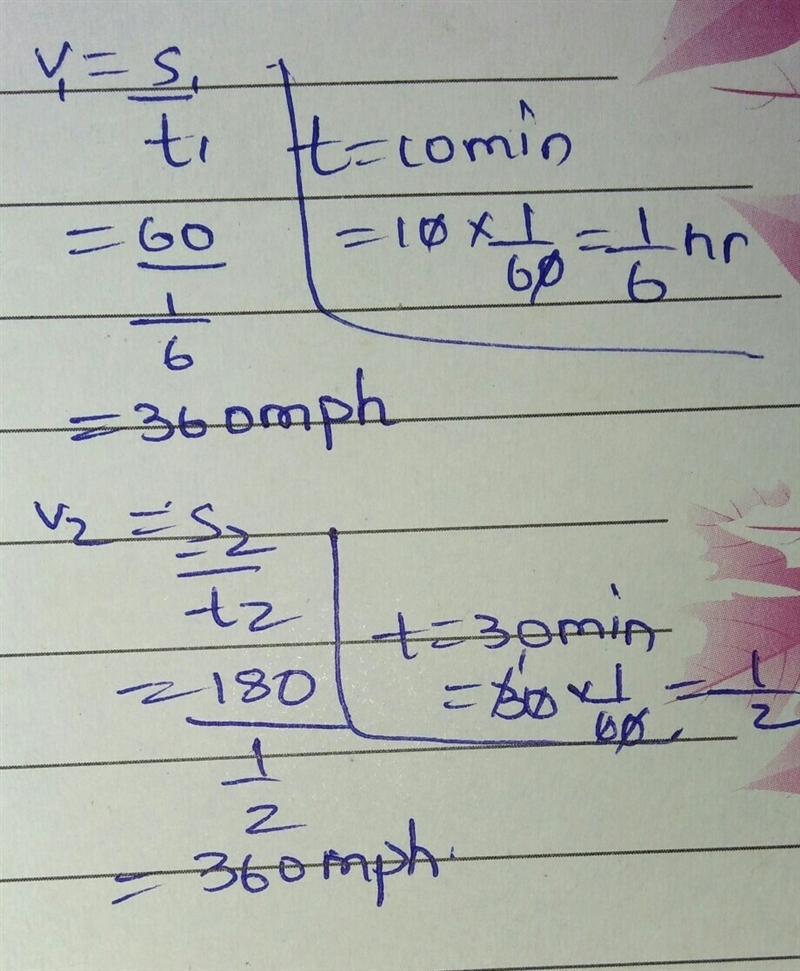 V₁ = S₁ / t₁
t = 10min
= 10 × 1/60 = 1/6 hr
= 60 / (1/6)
= 360mph
V₂ = S₂ / t₂
t = 30min
= 30 × 1/60 = 1/2
= 180 / (1/2)
= 360mph.